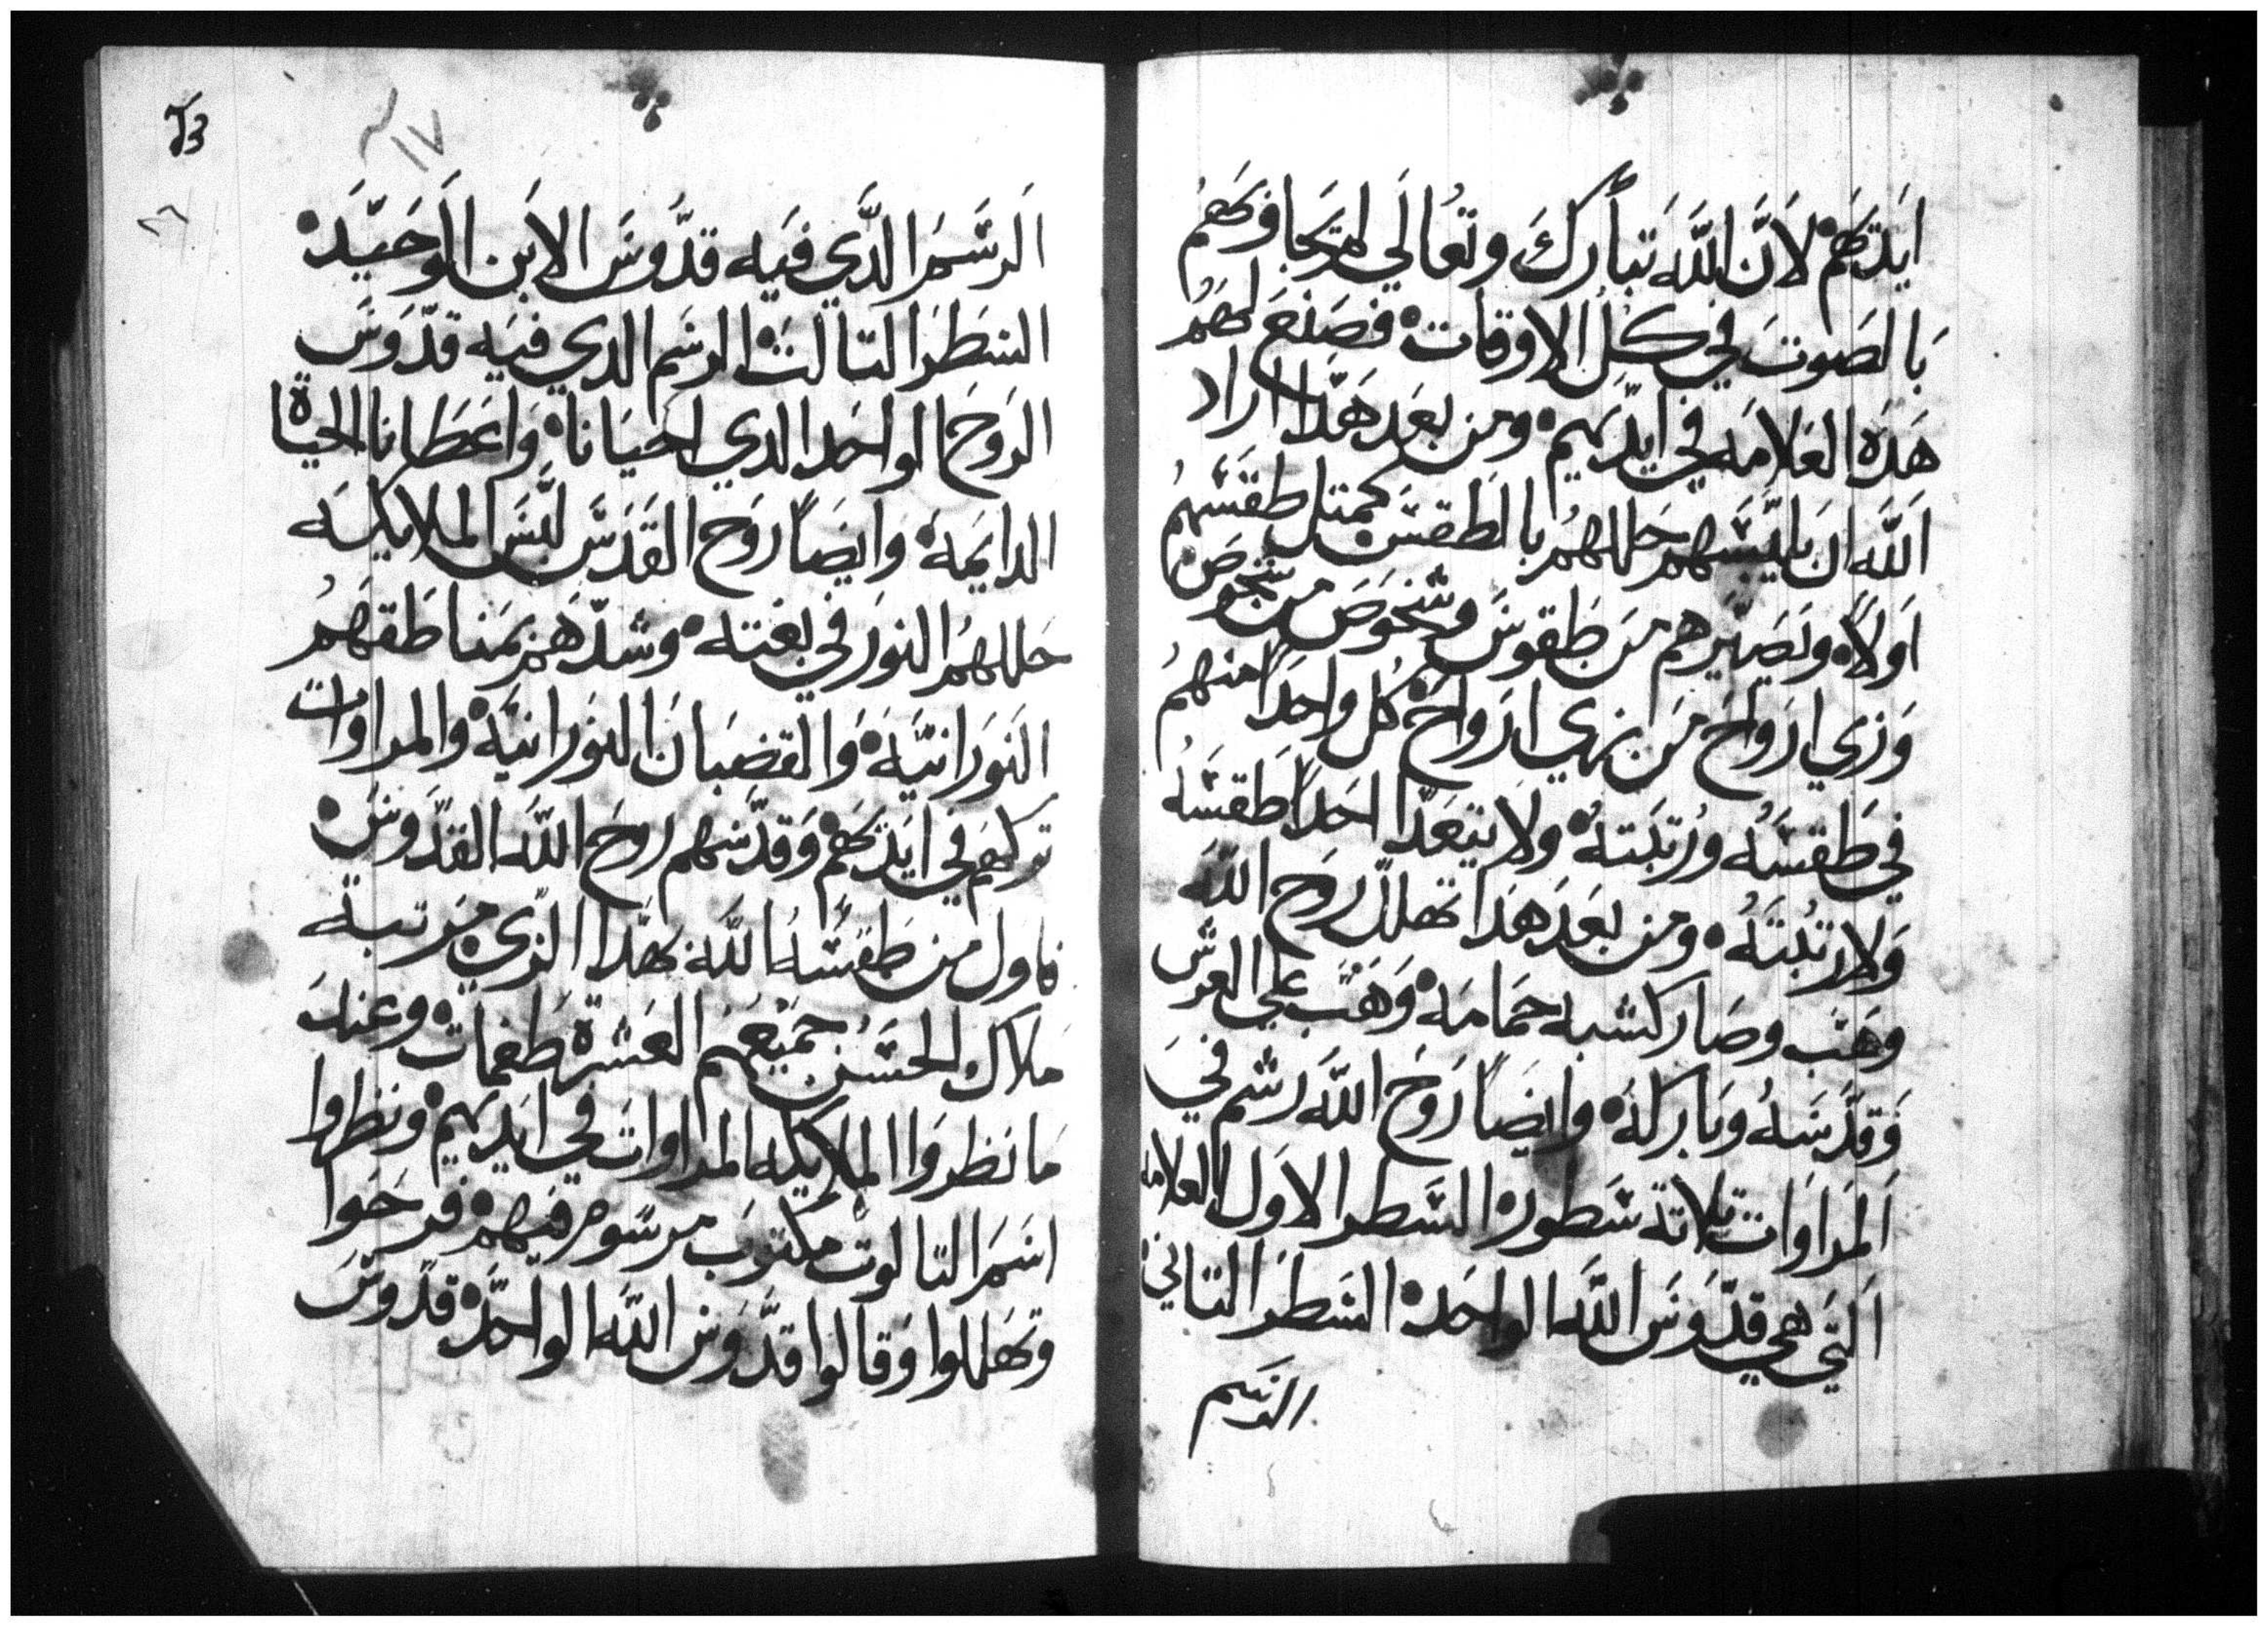 ايديهم لان الله تبارك وتعالي لم يجاوبهم
بالصوت في كل الاوقات فصنع لهم
هذه العلامه في ايديهم ومن بعد هذا اراد
الله ان يلبسهم حللهم بالطقس كمتل طقسهم
اولاً ويصيرهم من طقوس وشخوص من شخوص
وزي ارواح من زي ارواح كل واحداً منهم
في طقسه ورتبته ولا يتعدا احداً طقسه
ولا رتبته ومن بعد هذا تهلل روح الله
وهب وصار كشبه حمامه وهب علي العرش
وقدسه وباركه وايضاً روح الله رشم في
المراوات تلاتة شطور الشطر الاول العلامه
التي هي قدوس الله الواحد الشطر التاني
الرسم
١٧
الرشم الذي فيه قدوس الابن الوحيد
الشطر التالت الرشم الدي فيه قدوس
الروح الواحد الدي احيانا واعطانا الحياة
الدايمة وايضاً روح القدس لبس الملايكه
حللهم النور في بغته وشدهم بمناطقهم
النورانية والقضبان النورانية والمراوات
تركهم في ايديهم وقدسهم روح الله القدوس
فاول من طقسه الله بهذا الزي مرتبة
ملاك الحسن جميعهم العشرة طغمات وعند
ما نظروا الملايكه المراوات في ايديهم ونظروا
اسم التالوت مكتوب مرسوم فيهم فرحوا
وتهللوا وقالوا قدوس الله الواحد قدوس